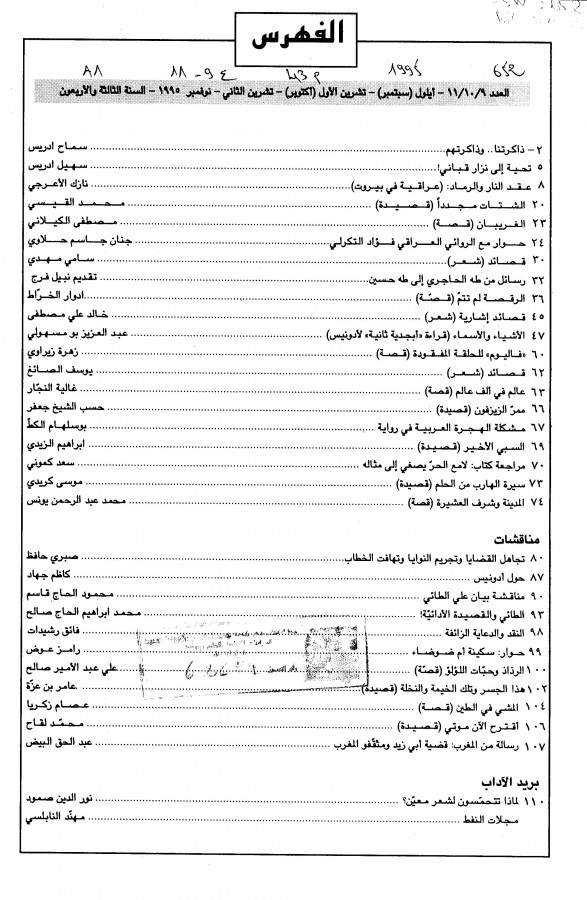 الفهرس
A8 11-94 43م 1995 652
العدد ١١/١٠/٩ – ايلول (سبتمبر) – تشرين الأول (أكتوبر) – تشرين الثاني – نوفمبر ١٩٩٥ – السنة الثالثة والأربعون
٢ – ذاكرتنا.. وذاكرتهم ... سماح ادريس
٥ تحية إلى نزار قباني! ... سهيل ادريس
٨ عقد النار والرماد: (عراقية في بيروت) ... نازك الأعرجي
٢٠ الشتات مجدداً (قصيدة) ... محمد القيسي
٢٣ الغريبان (قصة) ... مصطفى الكيلاني
٢٤ حوار مع الروائي العراقي فؤاد التكرلي ... جنان جاسم حلاوي
٣٠ قصائد (شعر) ... سامي مهدي
٣٢ رسائل من طه الحاجري إلى طه حسين ... تقديم نبيل فرج
٣٦ الرقصة لم تتمّ (قصّة) ... ادوار الخرّاط
٤٥ قصائد إشارية (شعر) ... خالد علي مصطفى
٤٧ الأشياء والأسماء (قراءة «أبجدية ثانية» لأدونيس) ... عبد العزيز بو مسهولي
٦٠ «فاليوم» للحلقة المفقودة (قصة) ... زهرة زيراوي
٦٢ قصائد (شعر) ... يوسف الصائغ
٦٣ عالم في ألف عالم (قصة) ... غالية النجّار
٦٦ ممرّ الزيزفون (قصيدة) ... حسب الشيخ جعفر
٦٧ مشكلة الهجرة العربية في رواية ... بوسلهام الكطّ
٦٩ السبي الأخير (قصيدة) ... ابراهيم الزيدي
٧٠ مراجعة كتاب: لامع الحرّ يصغي إلى مثاله ... سعد كموني
٧٣ سيرة الهارب من الحلم (قصيدة) ... موسى كريدي
٧٤ المدينة وشرف العشيرة (قصة) ... محمد عبد الرحمن يونس
مناقشات
٨٠ تجاهل القضايا وتجريم النوايا وتهافت الخطاب ... صبري حافظ
٨٧ حول أدونيس ... كاظم جهاد
٩٠ مناقشة بيان علي الطائي ... محمود الحاج قاسم
٩٣ الطائي والقصيدة الأدائية! ... محمد ابراهيم الحاج صالح
٩٨ النقد والدعاية الزائفة ... فائق رشيدات
٩٩ حوار: سكينة أم ضوضاء ... رامز عوض
١٠٠ الرذاذ وحبّات اللؤلؤ (قصّة) ... علي عبد الأمير صالح
١٠٢ هذا الجسر وتلك الخيمة والنخلة (قصيدة) ... عامر بن عزّة
١٠٤ المشي في الطين (قصة) ... عصام زكريا
١٠٦ أقترح الآن موتي (قصيدة) ... محمّد لقاح
١٠٧ رسالة من المغرب: قضية أبي زيد ومثقّفو المغرب ... عبد الحق البيض
بريد الآداب
١١٠ لماذا تتحمّسون لشعر معيّن؟ ... نور الدين صمود
مجلات النفط ... مهنّد النابلسي